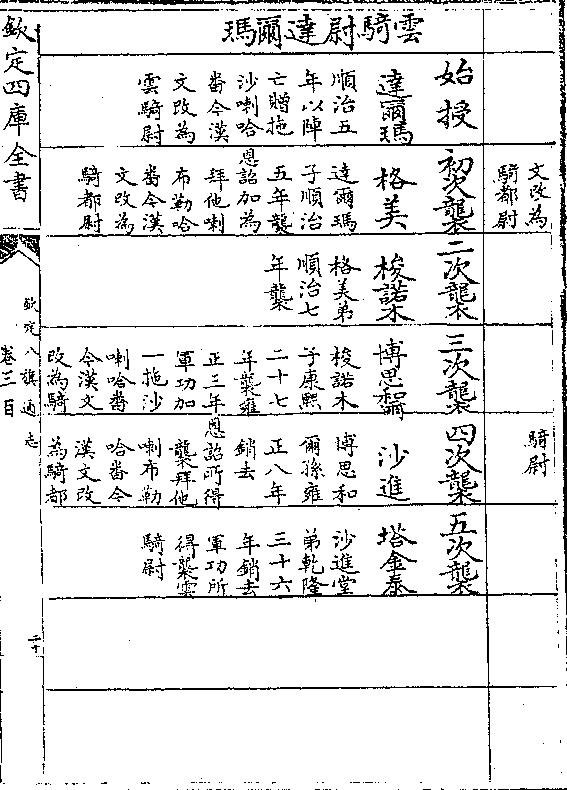 文改為
騎都尉
騎尉
雲騎尉達爾瑪
始授
達爾瑪
順治五
年以陣
亡贈拖
沙喇哈
番今漢
文改為
雲騎尉
初次襲
格美
達爾瑪
子順治
五年襲
恩詔加為
拜他喇
布勒哈
番今漢
文改為
騎都尉
二次襲
梭諾木
格美弟
順治七
年襲
三次襲
博思和爾
梭諾木
子康熙
二十七
年襲雍
正三年
軍功加
一拖沙
喇哈番
今漢文
改為騎
四次襲
沙進
博思和
爾孫雍
正八年
銷去
恩詔所得
襲拜他
喇布勒
哈番今
漢文改
為騎都
五次襲
塔金泰
沙進堂
弟乾隆
三十六
年銷去
軍功所
得襲雲
騎尉
欽定四庫全書
欽定八旗通志
卷三百
二十